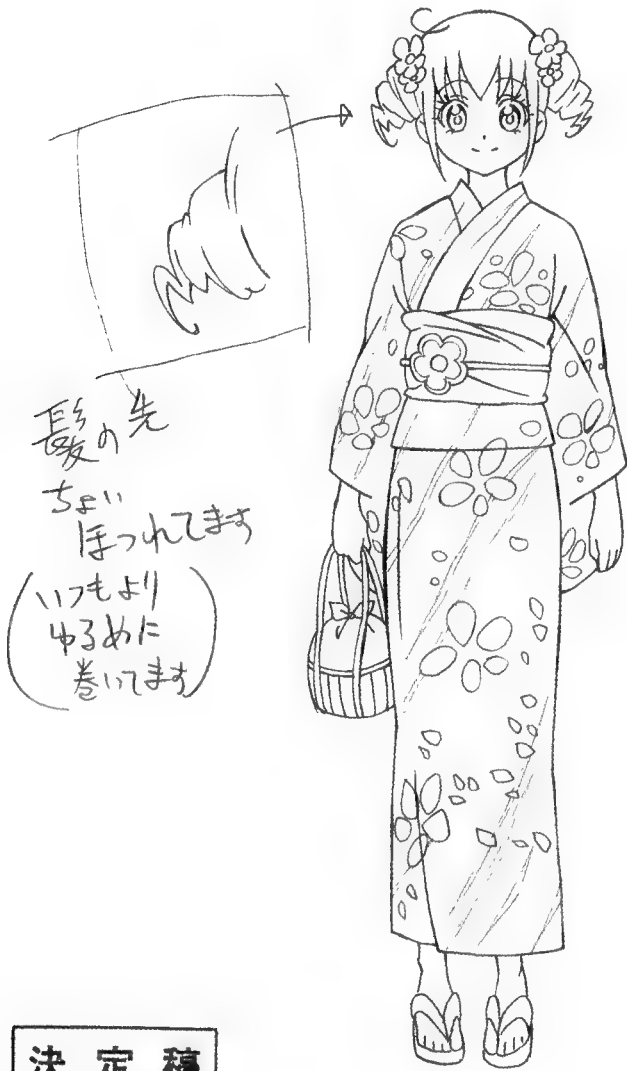 髪の先
ちょい
ほつれてます
(いつもより
ゆるめに
巻いてます)
決定稿